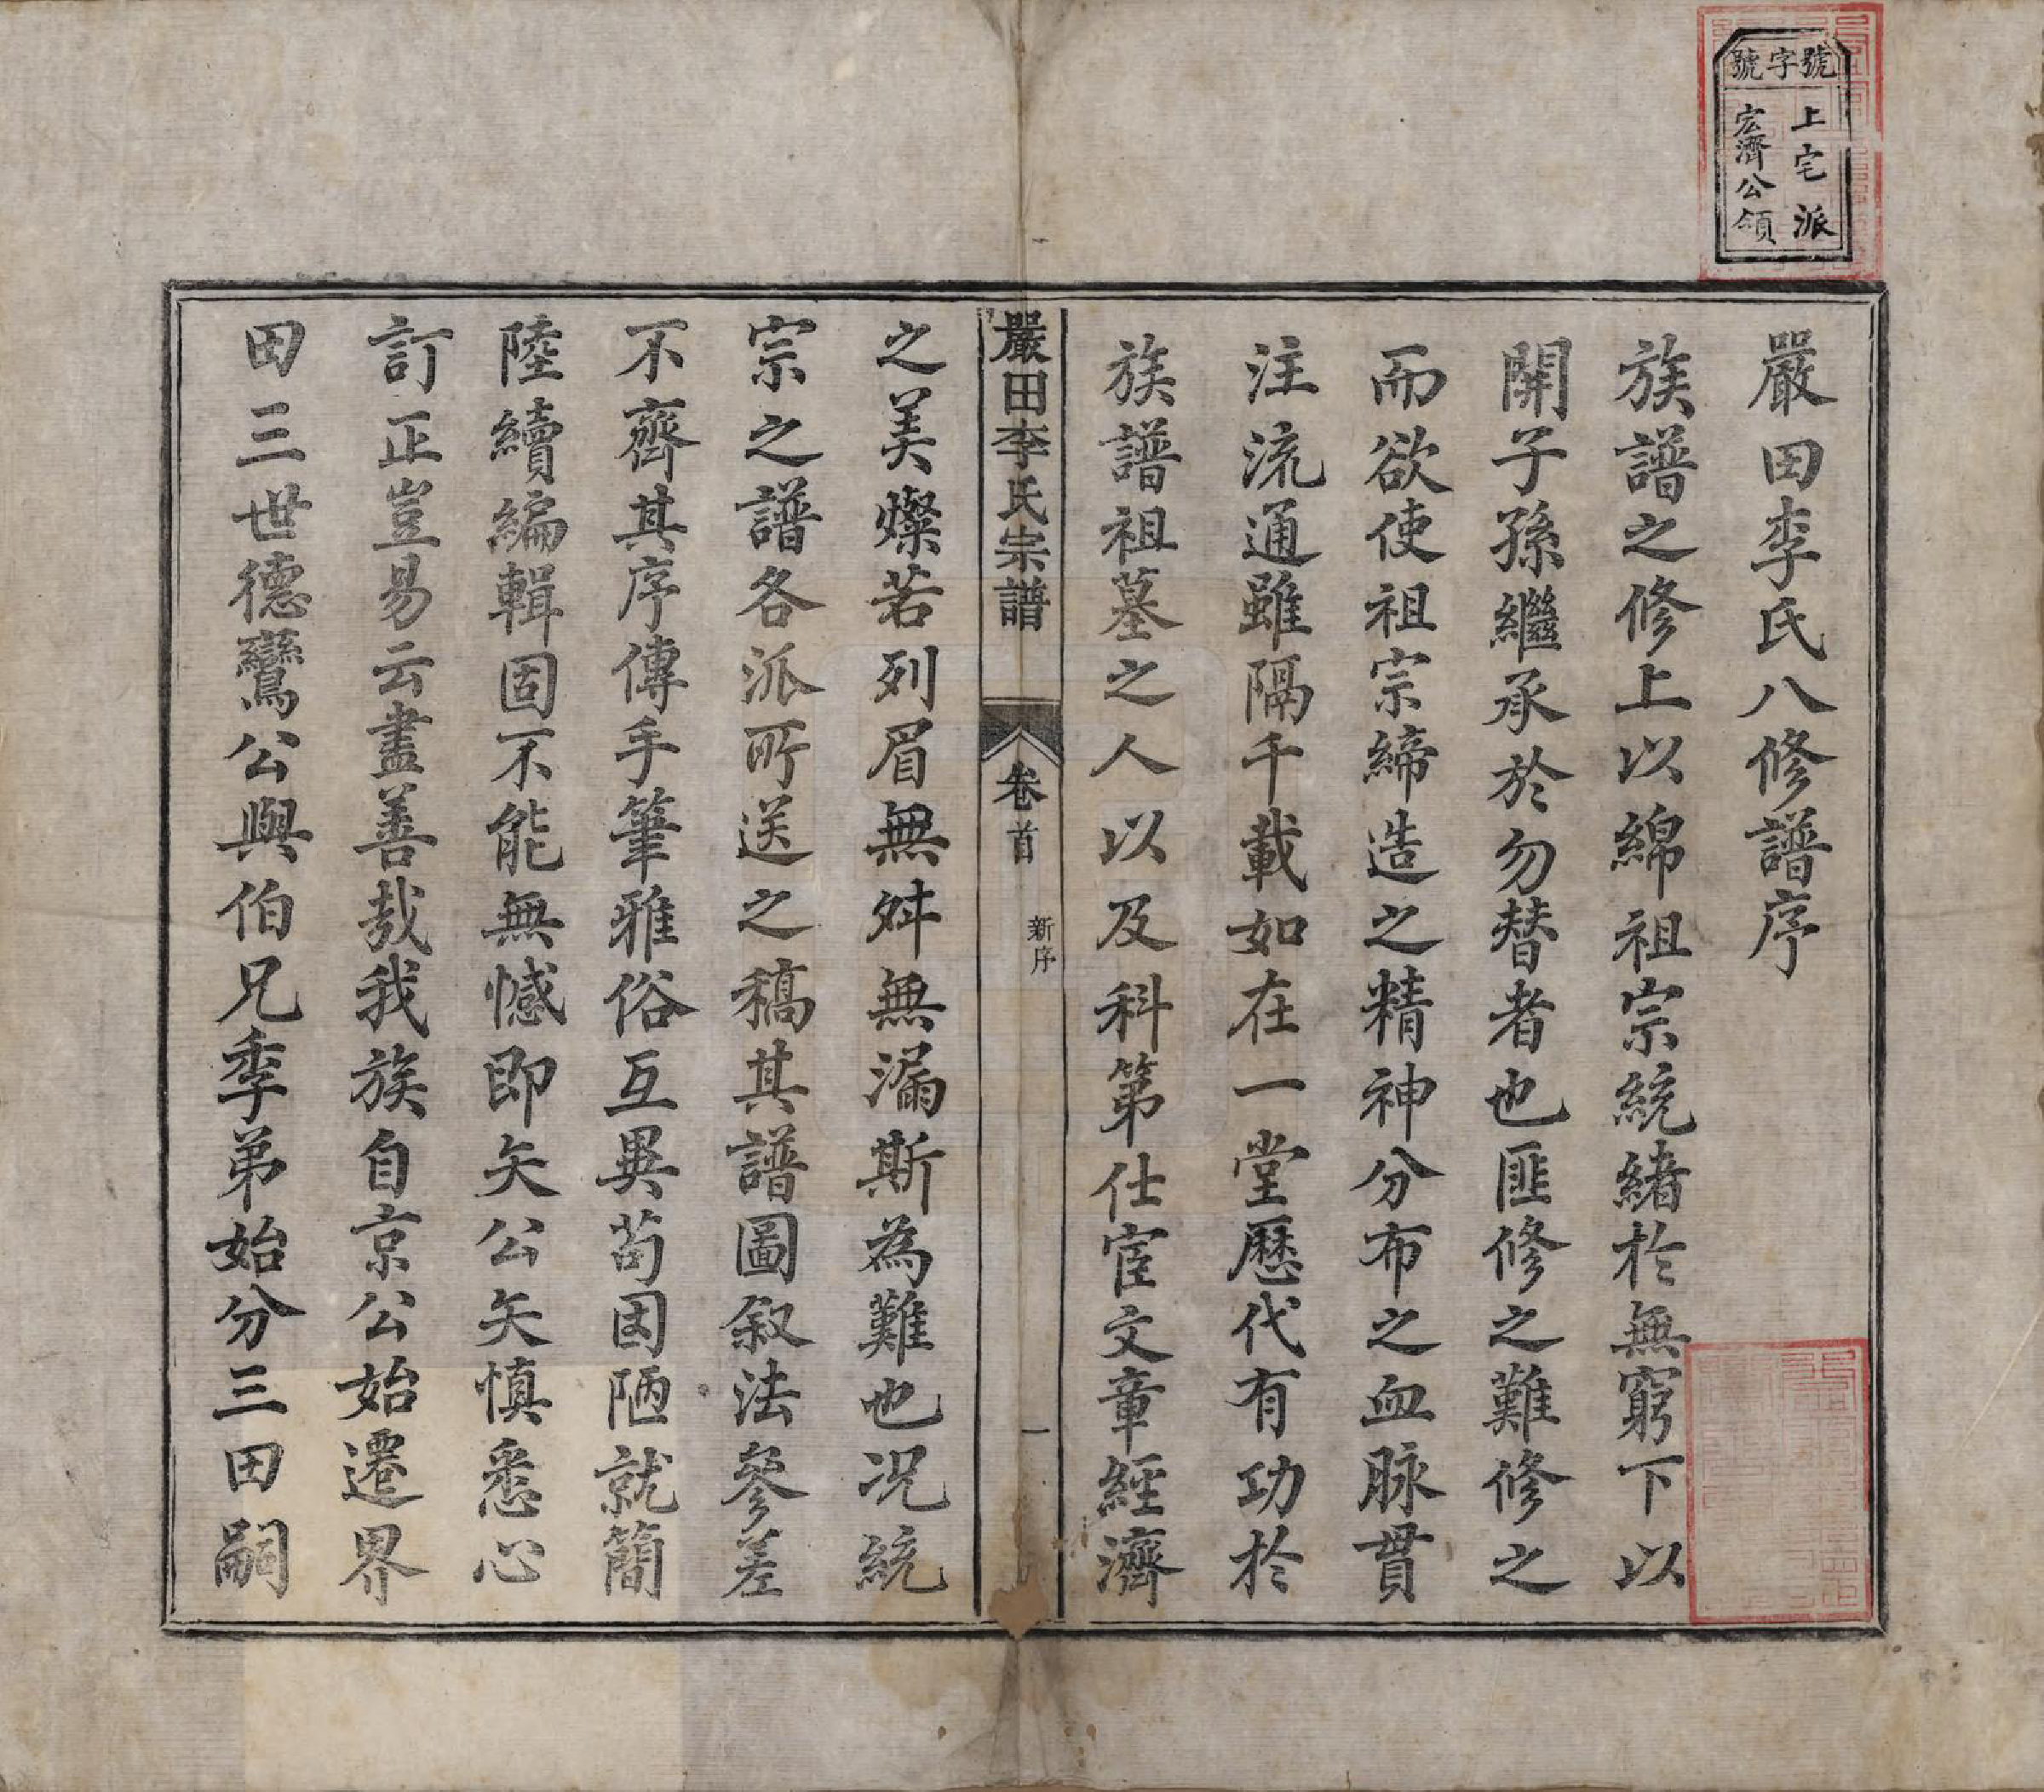 號字號
上宅派
宏濟公領
嚴田李氏八修譜序
族譜之修上以綿祖宗統緒於無窮下以
開子孫繼承於勿替者也匪修之難修之
而欲使祖宗締造之精神分布之血脉貫
注流通雖隔千載如在一堂歷代有功於
族譜祖墓之人以及科第仕宦文章經濟
嚴田李氏宗譜
卷首
新序
一
之美燦若列眉無舛無漏斯為難也况統
宗之譜各派所送之稿其譜圖叙法參差
不齊其序傳手筆雅俗互異苟因陋就簡
陸續編輯固不能無憾即矢公矢慎悉心
訂正豈易云盡善哉我族自京公始遷界
田三世德鸞公與伯兄季弟始分三田嗣